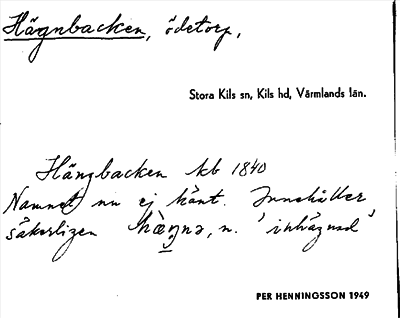 Hägnbacken, ödetorp,
Stora Kils sn, Kils hd, Värmlands län.
Hängbacken kb 1840
Namnet nu ej känt. Innehåller
säkerligen hæ̀ŋnə, n. 'inhägnad'
PER HENNINGSSON 1949